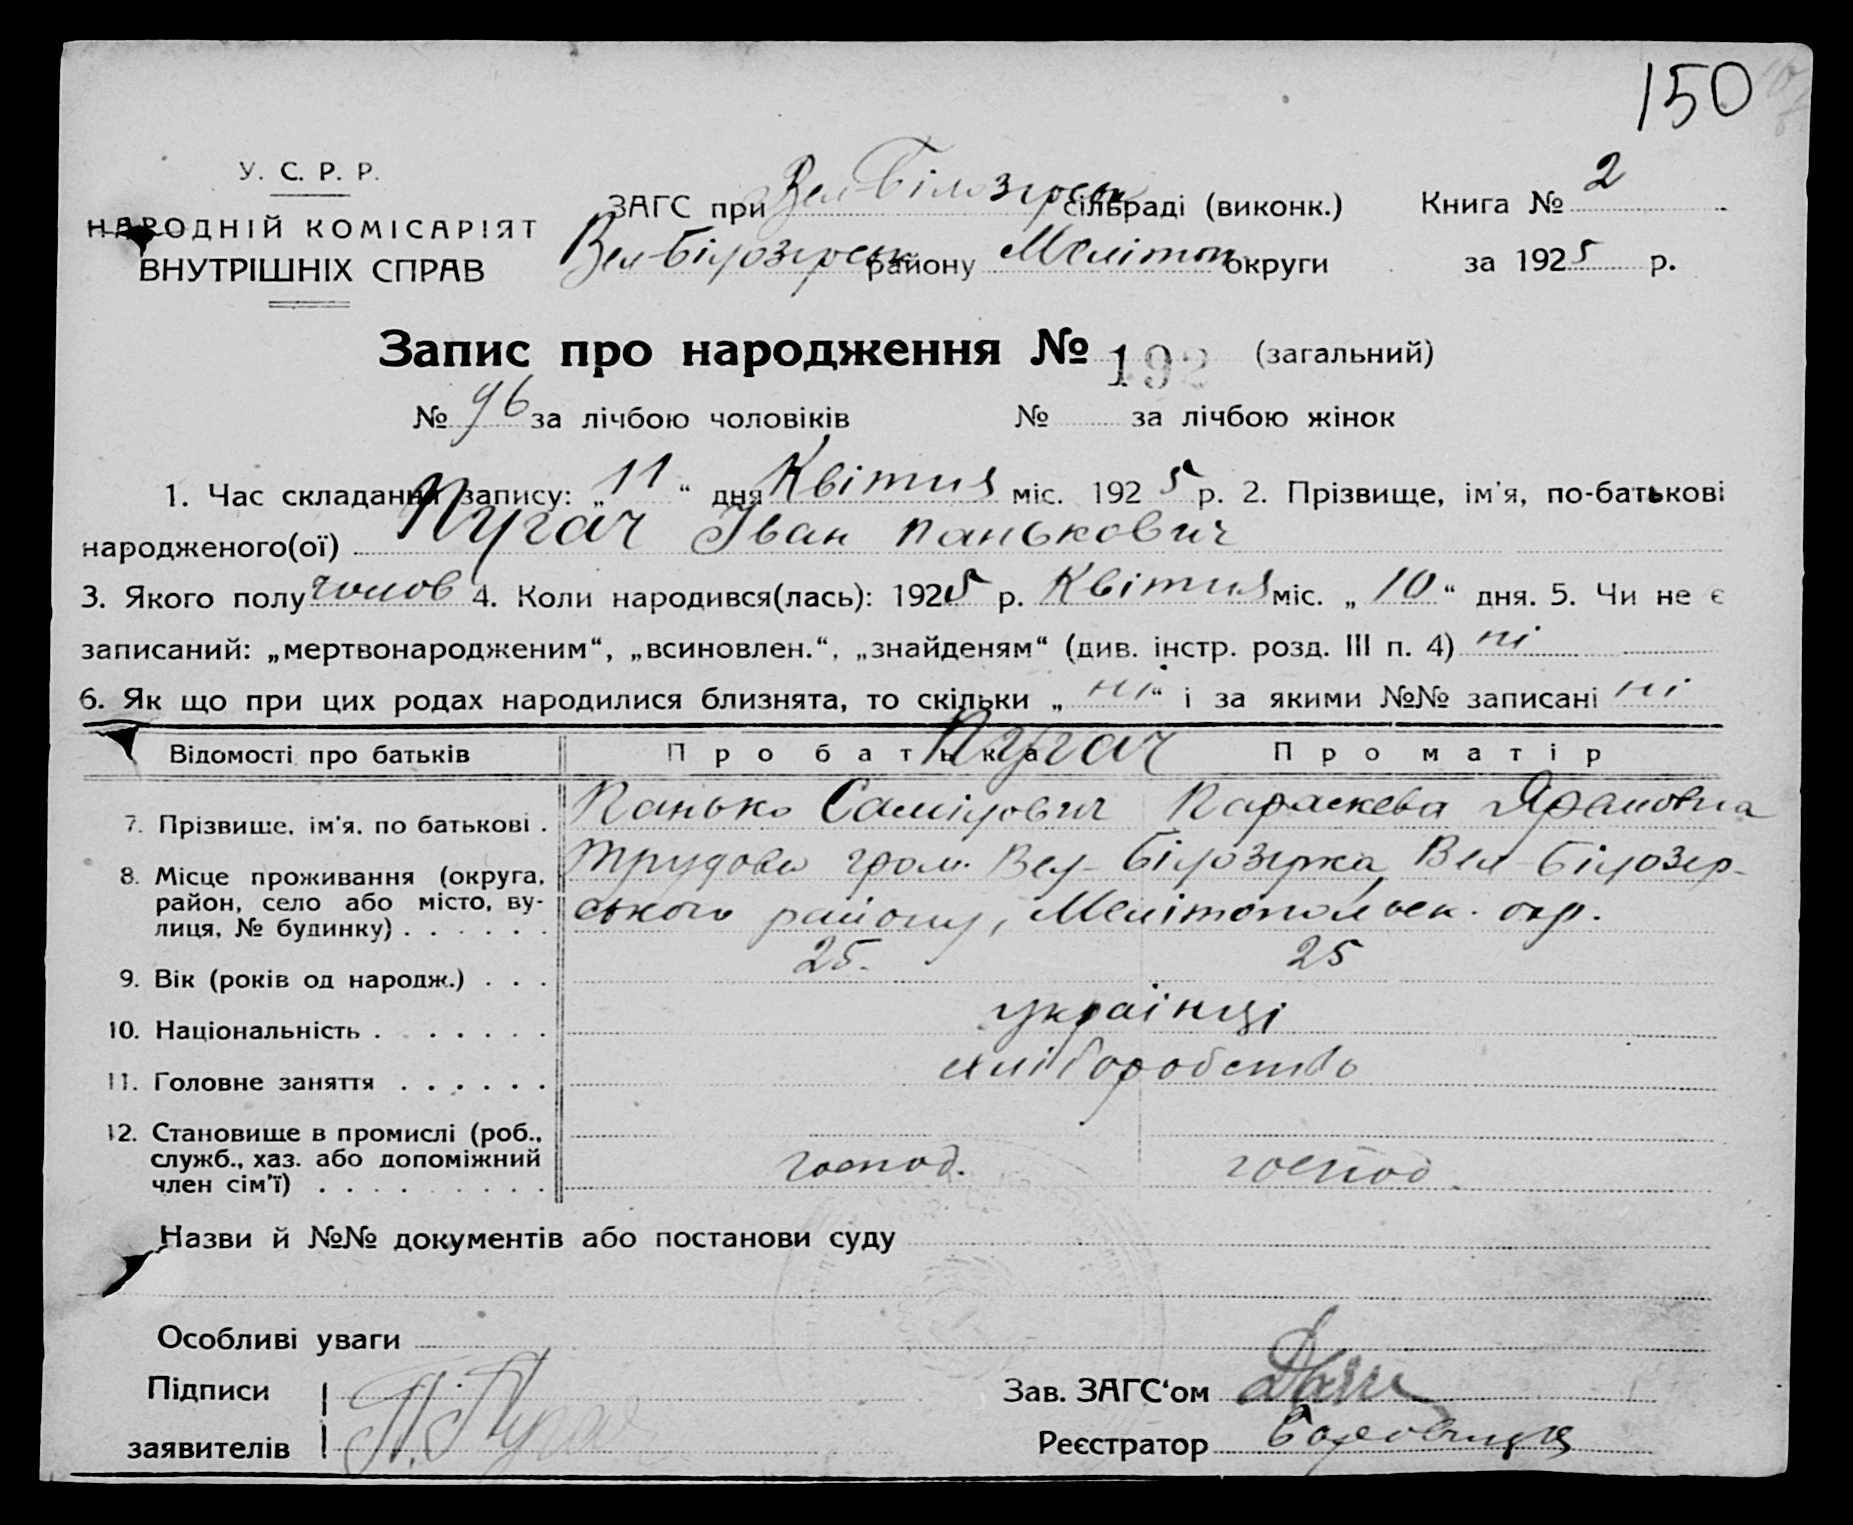 150
У. С. Р. Р.
НАРОДНІЙ КОМІСАРІЯТ
ВНУТРІШНІХ СПРАВ
ЗАГС при Вел-Білозірськ сільраді (виконк.) Книга № 2
Вел-Білозірськ району Мелітоп округи за 1925 р.
Запис про народження № 192 (загальний)
№ 96 за лічбою чоловіків № за лічбою жінок
1. Час складання запису: „11“ дня Квітня міс. 1925 р. 2. Прізвище, ім'я, по-батькові
народженого(ої) Пугач Іван Панькович
3. Якого полу чолов 4. Коли народився(лась): 1925 р. Квітня міс. „10“ дня. 5. Чи не є
записаний: „мертвонародженим“, „всиновлен.“, „знайденям“ (див. інстр. розд. III п. 4) ні
6. Як що при цих родах народилися близнята, то скільки „ні“ і за якими №№ записані ні
Відомості про батьків Про батька Пугач Про матір
7. Прізвище, ім'я, по батькові . Панько Самілович Параскева
8. Місце проживання (округа, район, село або місто, вулиця, № будинку) . . . . . . Трудова гром. Вел-Білозірка, Вел-Білозір-
ського району, Мелітопольськ. окр.
9. Вік (років од народж.) . . . 25. 25
10. Національність . . . . . . . українці
11. Головне заняття . . . . . . хліборобство
12. Становище в промислі (роб.,
служб., хаз. або допоміжний
член сім'ї) . . . . . . . . . господ. господ.
Назви й №№ документів або постанови суду
Особливі уваги
Підписи
заявителів П. Пугач
Зав. ЗАГС‘ом
Реєстратор